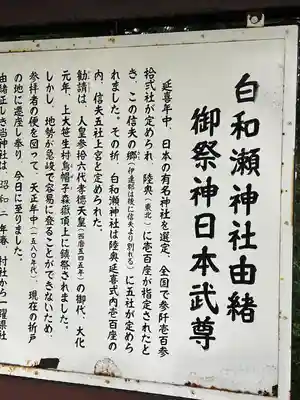 白和瀬神社由緒
御祭神日本武尊
延喜年中、日本の有名神社を選定、全国で参阡壱百参
拾弐社が定められ、陸奥（東北）に壱百座が指定されたと
き、この信夫の郷（伊達郡は後に信夫より別れる）に五社が定めら
れました。その折、白和瀬神社は陸奥延喜式内壱百座の
内、信夫五社上宮と定められました。
勧請は、人皇参拾六代孝徳天皇（西暦五四五年）の御代、大化
元年、上大笹生村烏帽子森嶽頂上に鎮祭されました。
しかし、地勢が急峻で容易に登ることができないため、
参拝者の便を図って、天正年中（一五八〇年代）、現在の折戸
の地に遷座し奉り、今日に至りました。
由緒正しき当神社は、昭和二年春、村社から一躍県社